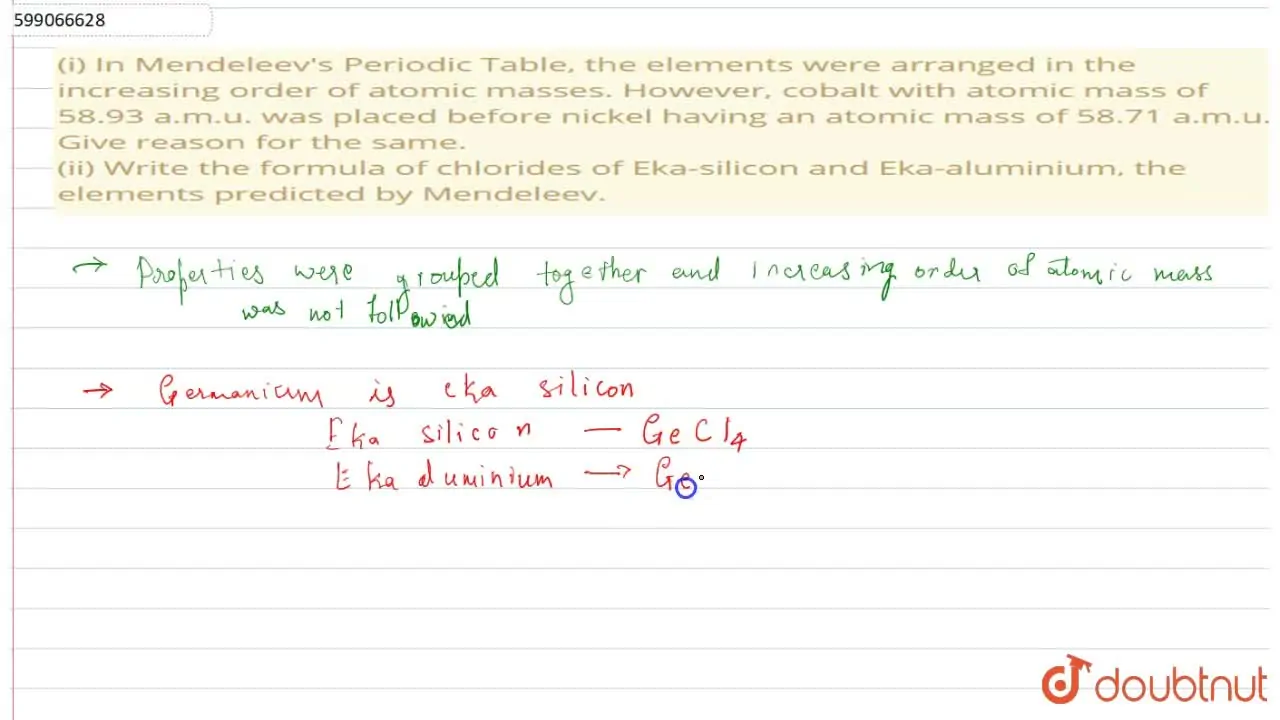 599066628
(i) In Mendeleev's Periodic Table, the elements were arranged in the
increasing order of atomic masses. However, cobalt with atomic mass of
58.93 a.m.u. was placed before nickel having an atomic mass of 58.71 a.m.u.
Give reason for the same.
(ii) Write the formula of chlorides of Eka-silicon and Eka-aluminium, the
elements predicted by Mendeleev.
→ Properties were grouped together and increasing order of atomic mass
was not followied
→ Germanium is eka silicon
Eka silicon — GeCl4
Eka aluminium → Ge
doubtnut